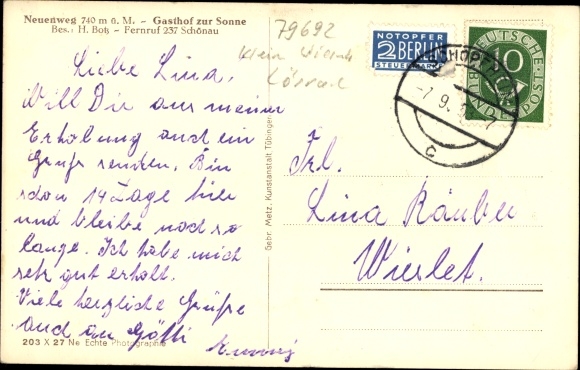 Neuenweg 740 m ü. M. – Gasthof zur Sonne
Bes.: H. Boß – Fernruf 237 Schönau
79692
Lörrach
Liebe Lina,
Will Dir aus meiner
Erholung auch ein
Gruß senden. Bin
schon 14 Tage hier
und bleibe noch so
lange. Ich habe mich
sehr gut erholt.
Viele herzliche Grüße
auch an Götti
203 X 27 Ne Echte Photographie
Gebr. Metz, Kunstanstalt Tübingen
NOTOPFER
2 BERLIN
STEUERMARKE
DEUTSCHE POST
10
SCHOPFHEIM
-7.9.
c
Frl.
Lina Räuber
Wieslet.